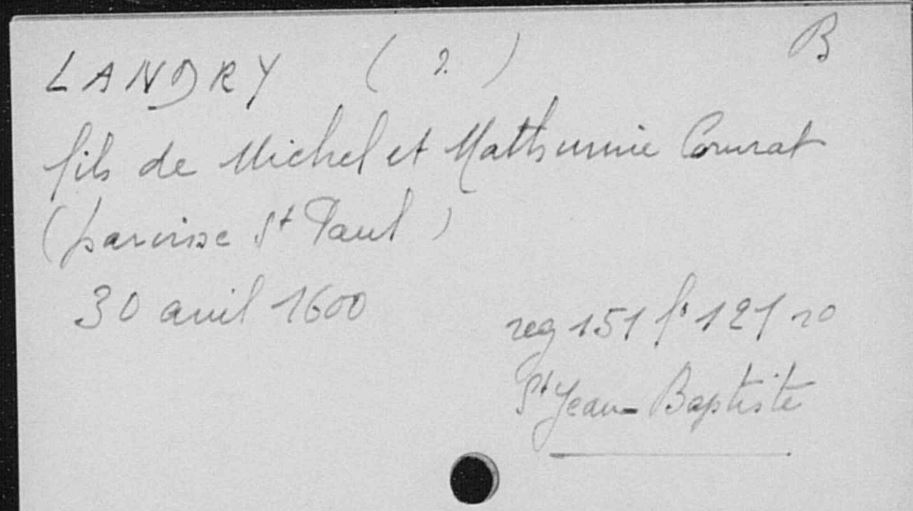 LANDRY ( ? ) B
fils de Michel et Mathurine Conrat
(paroisse St Paul)
30 avril 1600
reg 151 f° 121 ro
St Jean-Baptiste